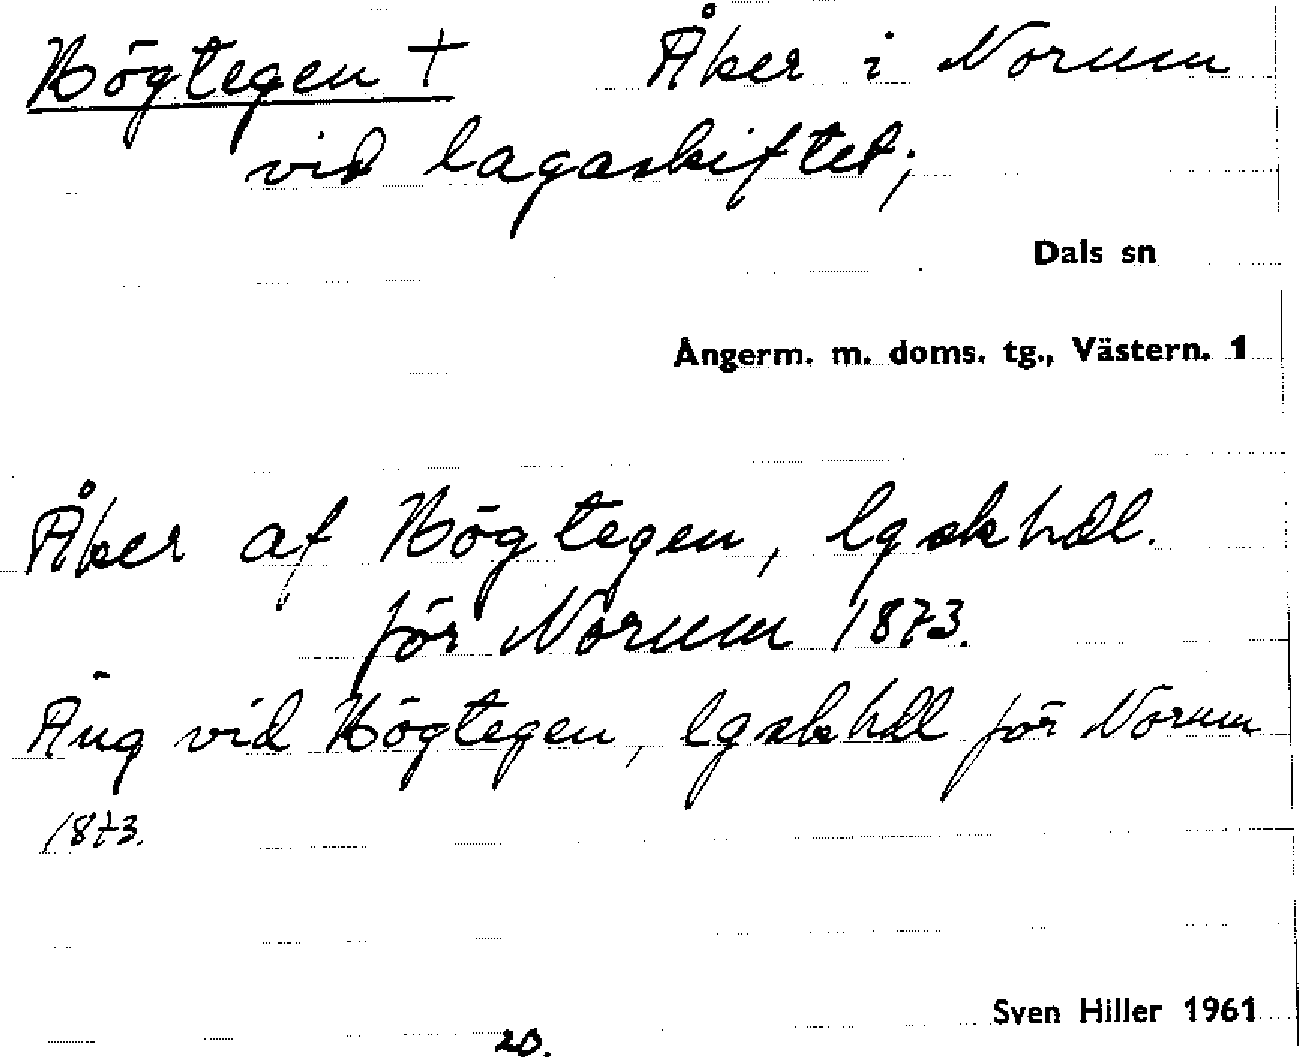 Högtegen + Åker i Norum
vid lagaskiftet;
Dals sn
Ångerm. m. doms. tg., Västern. 1
Åker af Högtegen, lgskhdl.
för Norum 1873.
Äng vid Högtegen, lgskhdl för Norum
1873.
Sven Hiller 1961
20.